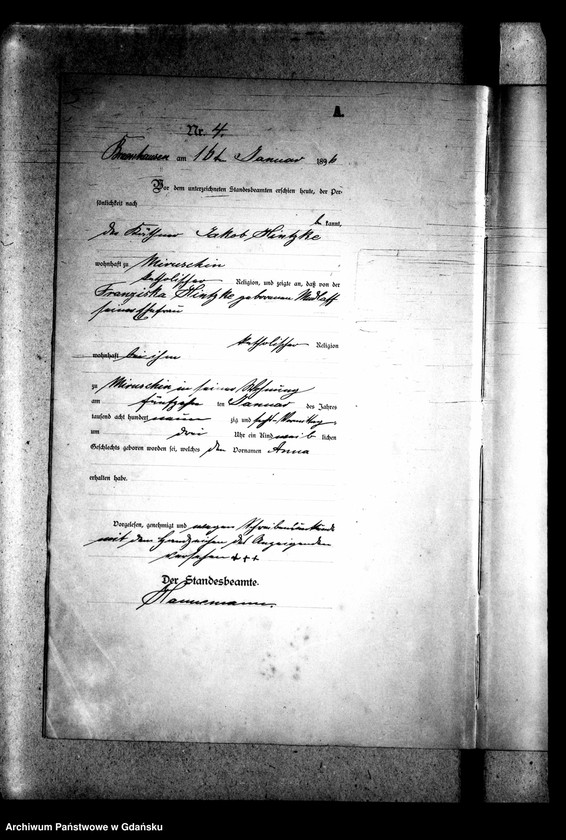 A.
Nr. 4.
am 16t Januar 1896
Vor dem unterzeichneten Standesbeamten erschien heute, der Per-
sönlichkeit nach
be kannt,
der Käthner Jakob Hintzke
wohnhaft zu Miruschin
katholischer Religion, und zeigte an, daß von der
Franziska Hintzke geborenen
seiner Ehefrau
katholischer Religion
wohnhaft bei ihm
zu Miruschin in seiner Wohnung
am fünfzehn ten Januar des Jahres
tausend acht hundert neun zig und sechs Vormittag
um drei Uhr ein Kind weib lichen
Geschlechts geboren worden sei, welches den Vornamen Anna
erhalten habe.
Vorgelesen, genehmigt und wegen Schreibensunkunde
mit dem Handzeichen des Anzeigenden
versehen + + +
Der Standesbeamte.
Hannemann.
Archiwum Państwowe w Gdańsku